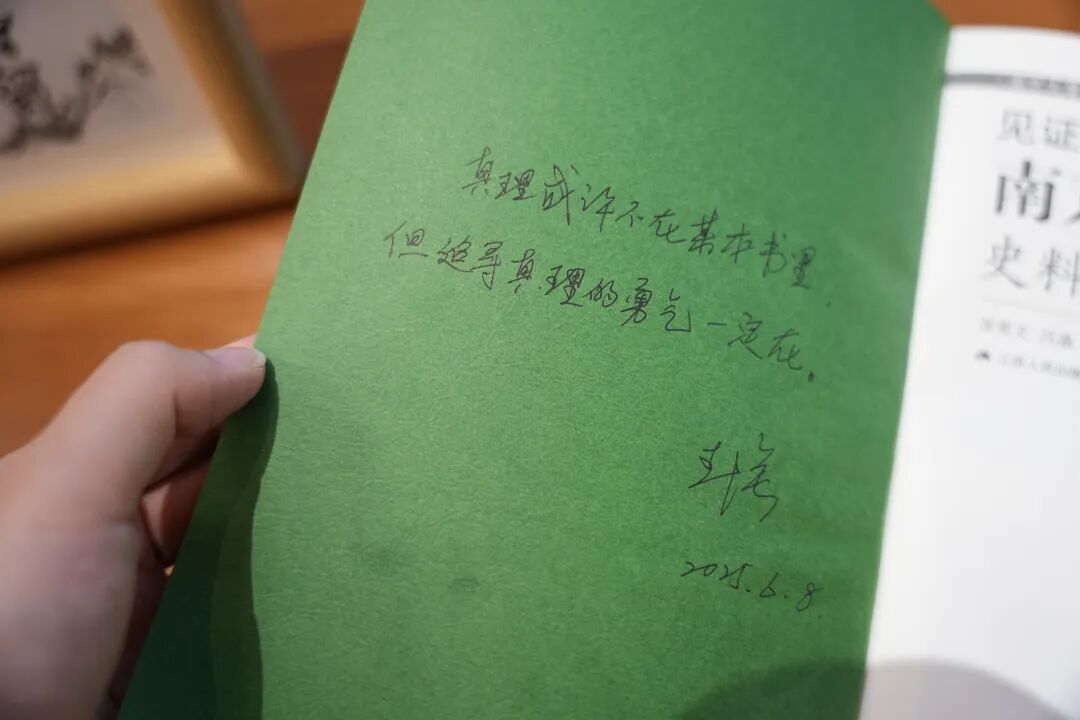 真理或许不在某本书里，
但追寻真理的勇气一定在。
2025.6.8
见证
南
史料